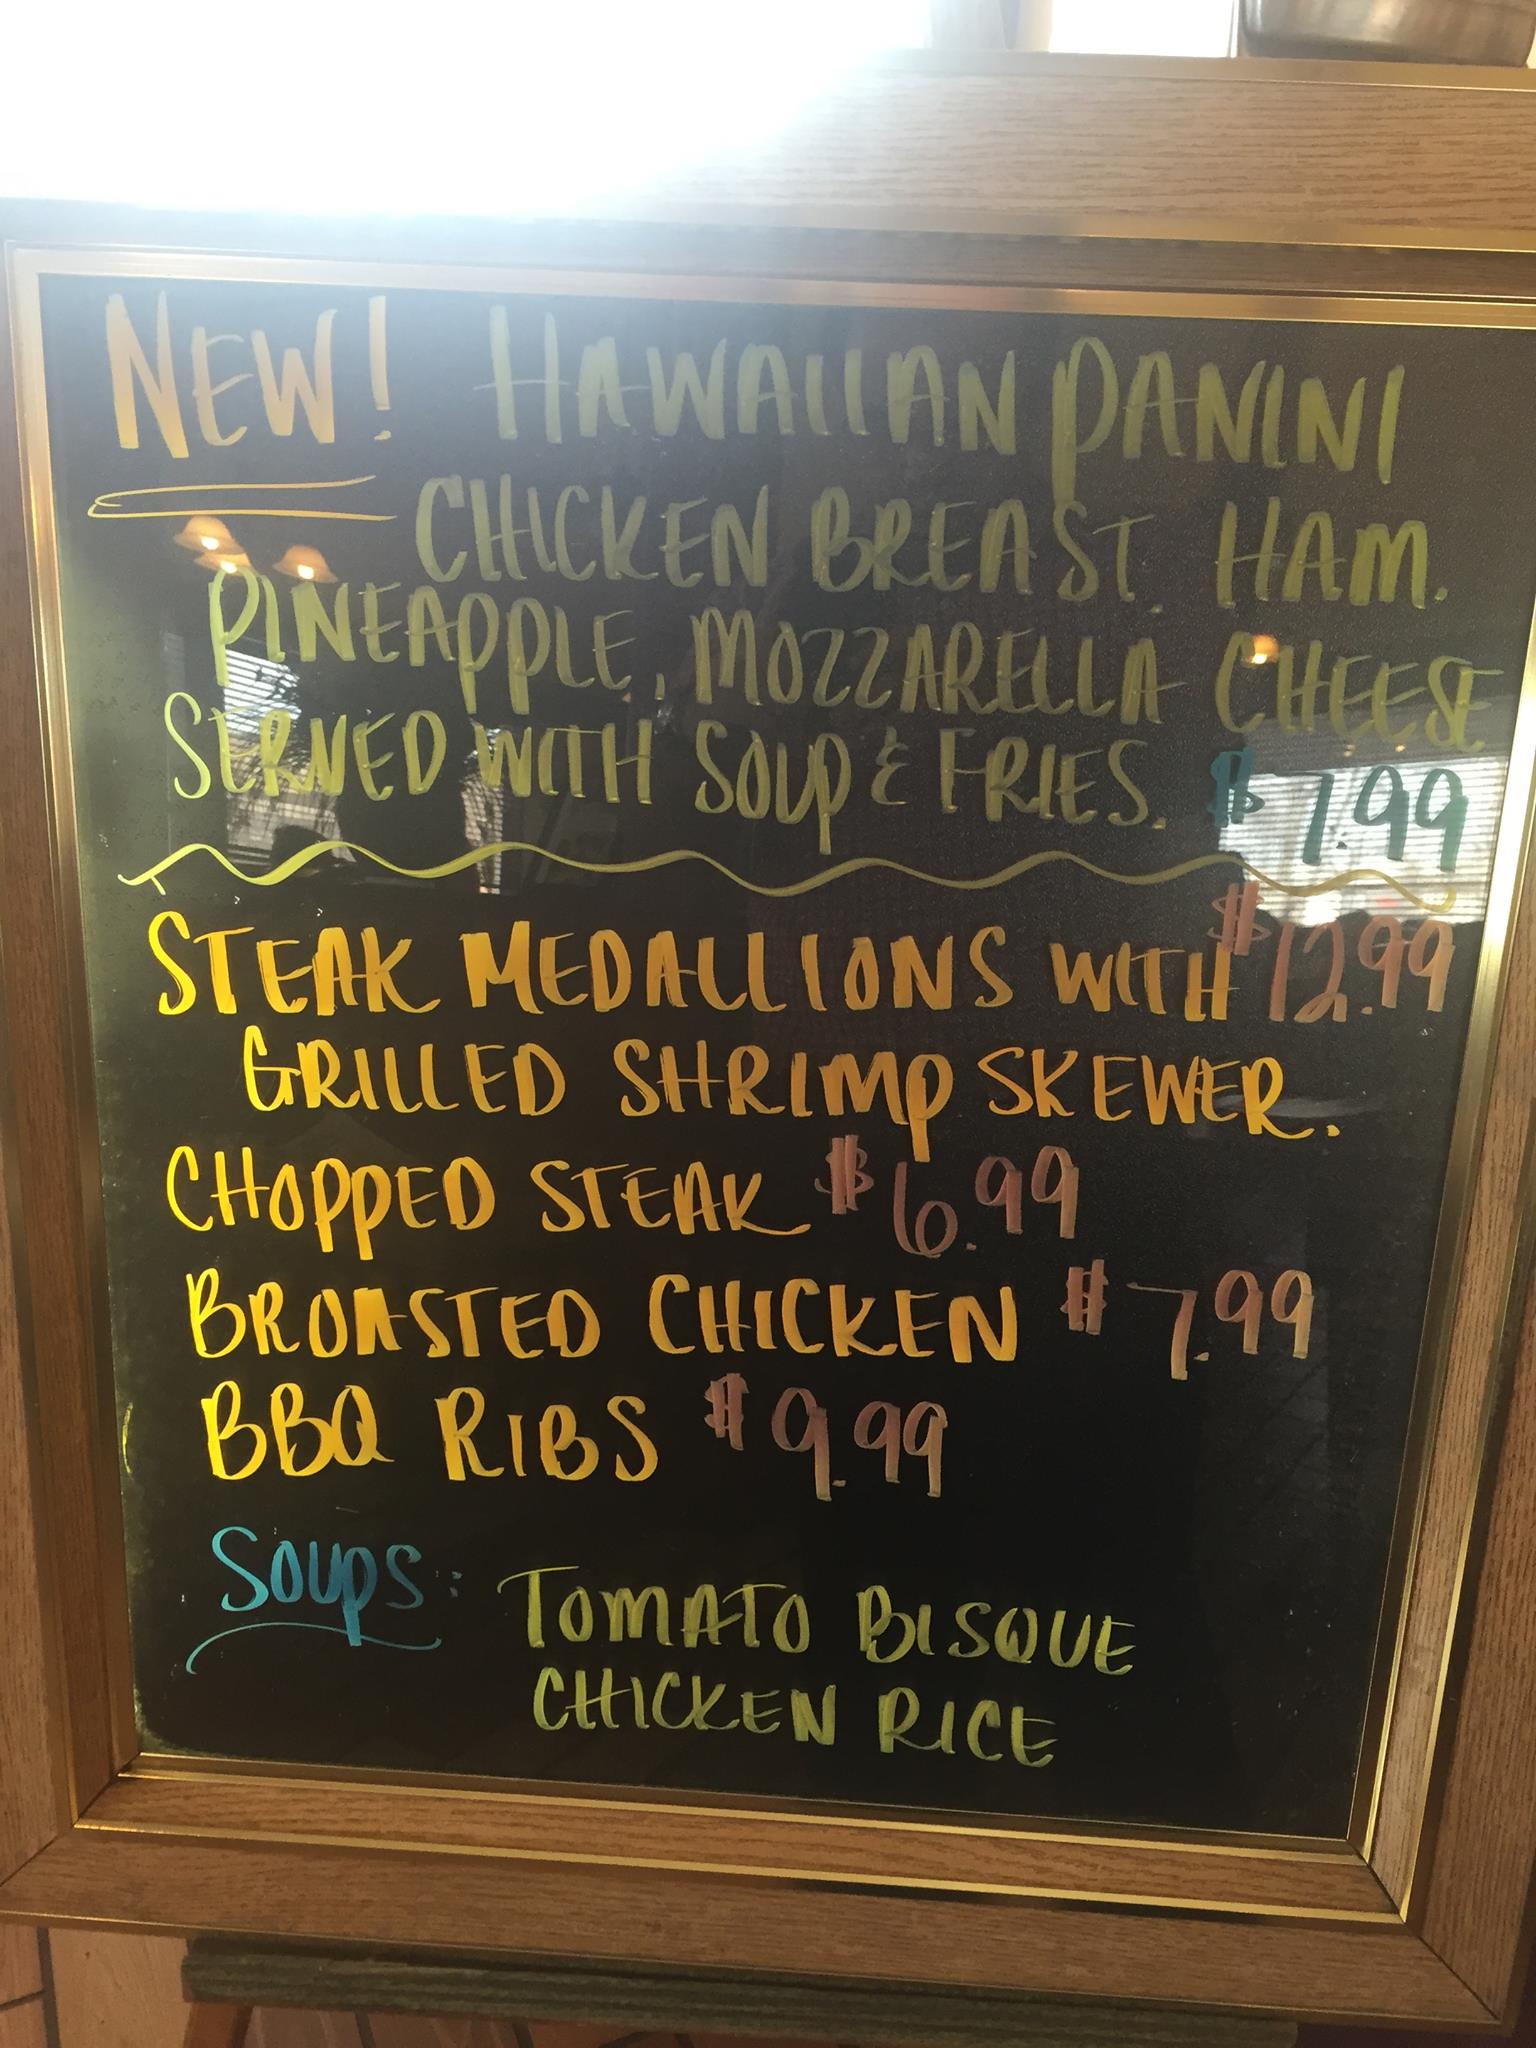 NEW! HAWAIIAN PANINI
CHICKEN BREAST, HAM.
PINEAPPLE, MOZZARELLA CHEESE
SERVED WITH SOUP & FRIES. $7.99
STEAK MEDALLIONS WITH $12.99
GRILLED SHRIMP SKEWER.
CHOPPED STEAK $6.99
BROASTED CHICKEN $7.99
BBQ RIBS $9.99
SOUPS: TOMATO BISQUE
CHICKEN RICE